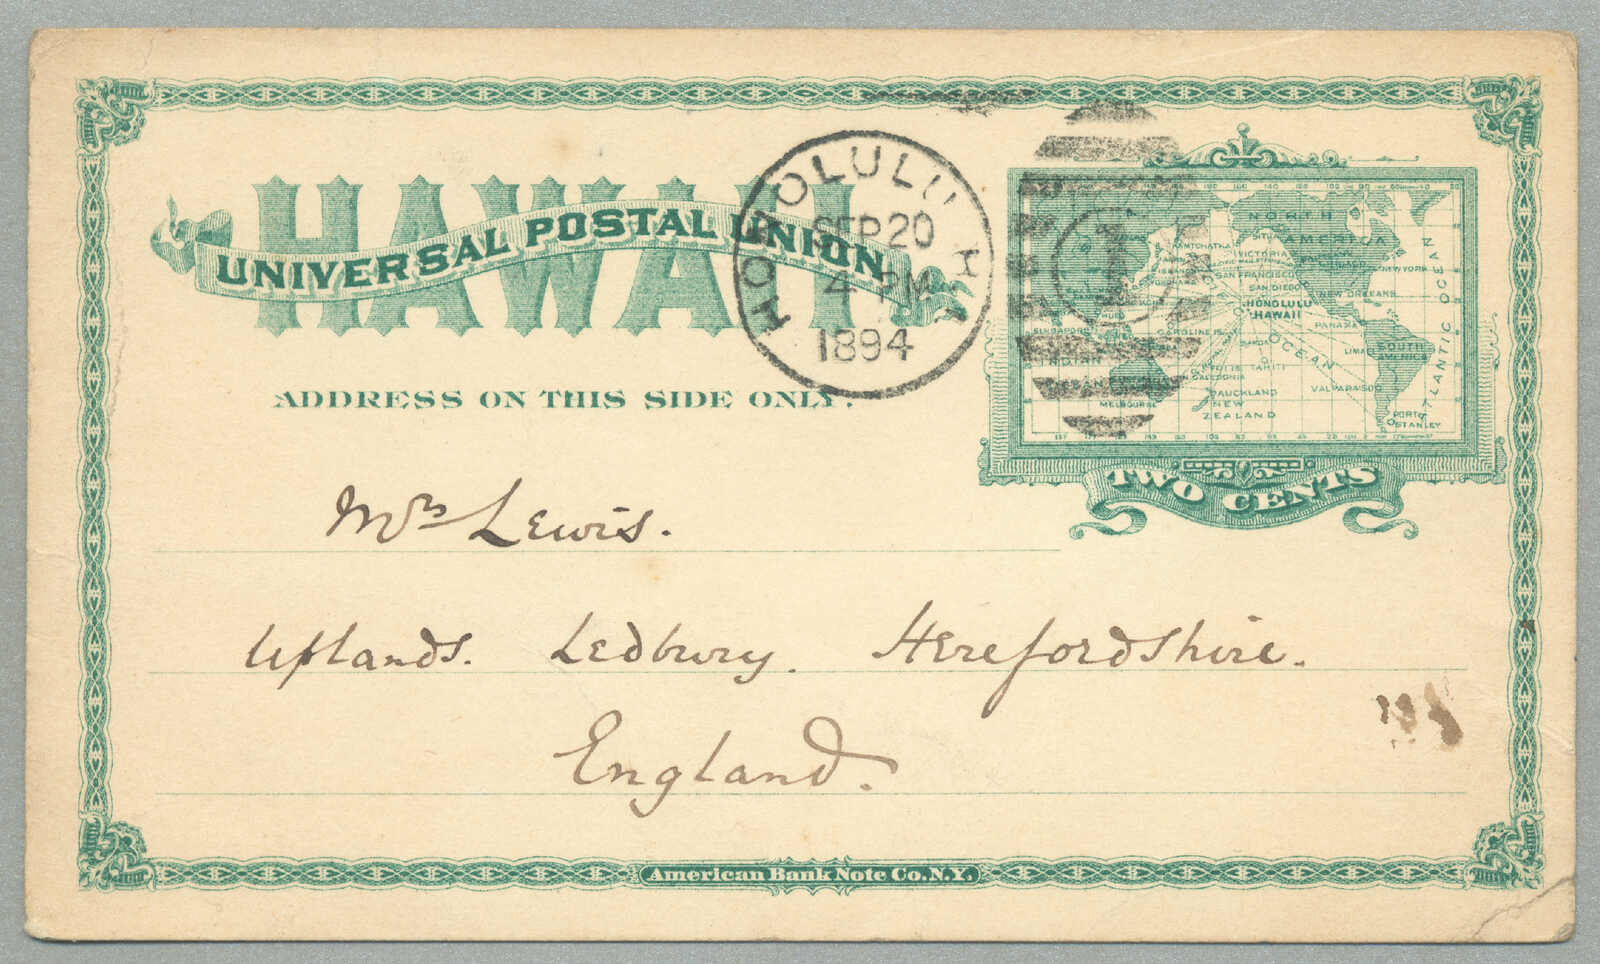 HAWAII
UNIVERSAL POSTAL UNION
ADDRESS ON THIS SIDE ONLY.
HONOLULU H.I.
SEP 20
4 PM
1894
1
NORTH
AMERICA
KAMTCHATKA
VICTORIA
SAN FRANCISCO
SAN DIEGO
NEW YORK
NEW ORLEANS
HONOLULU
HAWAII
PANAMA
SINGAPORE
CAROLINE IS.
OCEAN
LIMA
SOUTH
AMERICA
ATLANTIC OCEAN
FIJI IS. TAHITI
CALEDONIA
VALPARAISO
MELBOURNE
AUCKLAND
NEW
ZEALAND
PORT
STANLEY
TWO CENTS
Mrs Lewis.
Uplands. Ledbury. Herefordshire.
England.
American Bank Note Co. N.Y.